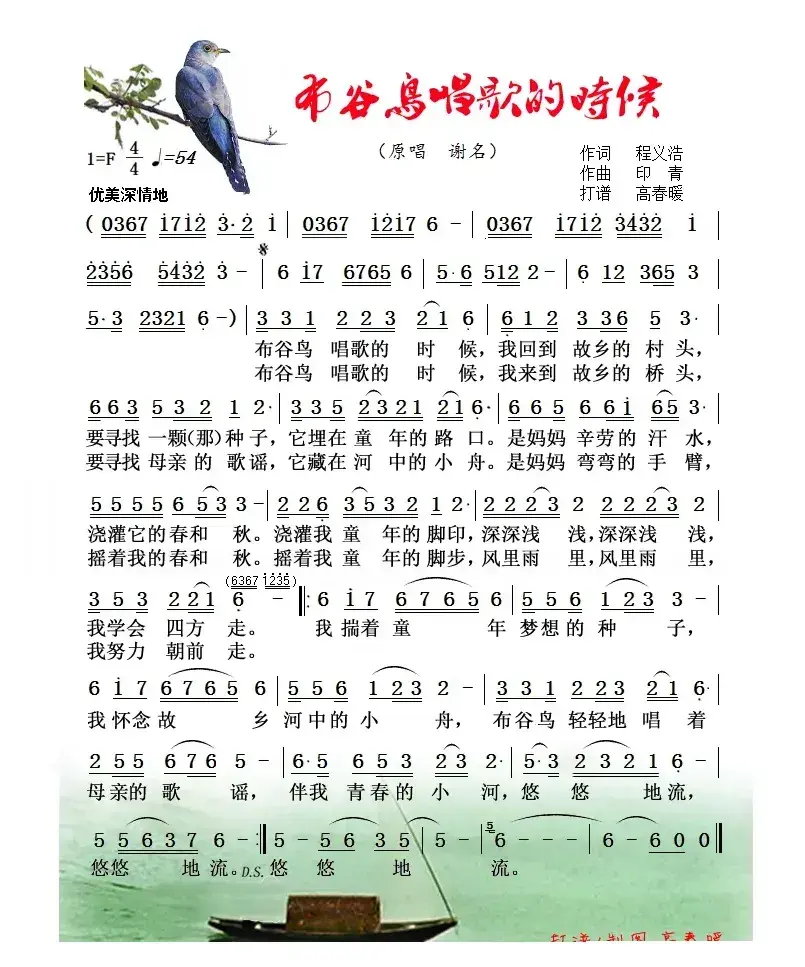 布谷鳥唱歌的時候
（原唱 谢名）
作词 程义浩
作曲 印 青
打谱 高春暖
1=F 4/4 ♩=54
优美深情地
( 0367 1712 3·2 1 | 0367 1217 6 - | 0367 1712 3432 1 |
2356 5432 3 - | 6 17 6765 6 | 5·6 512 2 - | 6 12 365 3 |
5·3 2321 6 - ) | 3 3 1 2 2 3 2 1 6 | 6 1 2 3 3 6 5 3· |
布谷鸟 唱歌的 时 候，我回到 故乡的 村 头，
布谷鸟 唱歌的 时 候，我来到 故乡的 桥 头，
6 6 3 5 3 2 1 2· | 3 3 5 2 3 2 1 2 1 6· | 6 6 5 6 6 1 6 5 3· |
要寻找 一颗(那)种 子，它埋在 童 年的 路 口。是妈妈 辛劳的 汗 水，
要寻找 母亲 的 歌 谣，它藏在 河 中的 小 舟。是妈妈 弯弯的 手 臂，
5 5 5 5 6 5 3 3 - | 2 2 6 3 5 3 2 1 2· | 2 2 2 3 2 2 2 2 3 2 |
浇灌它的春和 秋。浇灌我 童 年的脚印，深深浅 浅，深深浅 浅，
摇着我的春和 秋。摇着我 童 年的脚步，风里雨 里，风里雨 里，
(6367 1235)
3 5 3 2 2 1 6 - ‖: 6 1 7 6 7 6 5 6 | 5 5 6 1 2 3 3 - |
我学会 四方 走。 我 揣着 童 年 梦想的 种 子，
我努力 朝前 走。
6 1 7 6 7 6 5 6 | 5 5 6 1 2 3 2 - | 3 3 1 2 2 3 2 1 6· |
我 怀念 故 乡 河中的 小 舟， 布谷鸟 轻轻地 唱 着
2 5 5 6 7 6 5 - | 6·5 6 5 3 2 3 2· | 5·3 2 3 2 1 6 - |
母亲的 歌 谣， 伴我 青春的 小 河，悠 悠 地流，
5 5 6 3 7 6 - :‖ 5 - 5 6 3 5 | 5 - | 5 6 - - - | 6 - 6 0 0 ‖
悠悠 地 流。D.S. 悠 悠 地 流。
打谱/制图 高春暖